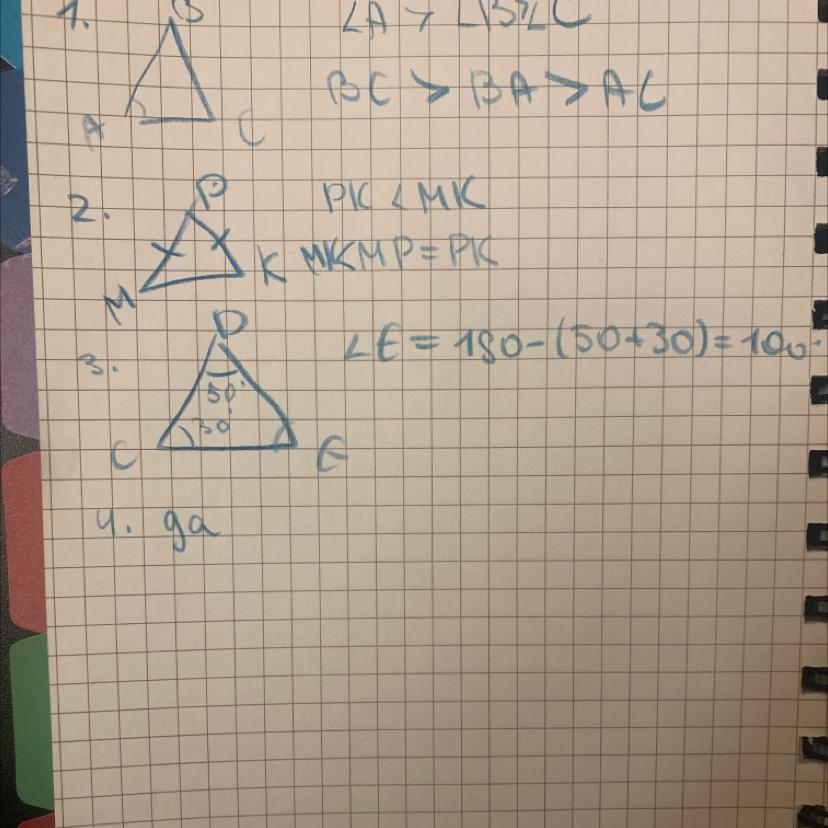 1. B ∠A > ∠B > ∠C
A C BC > BA > AC
2. P PK < MK
M K MK MP = PK
3. D ∠E = 180 - (50+30) = 100
50°
30°
C E
4. да